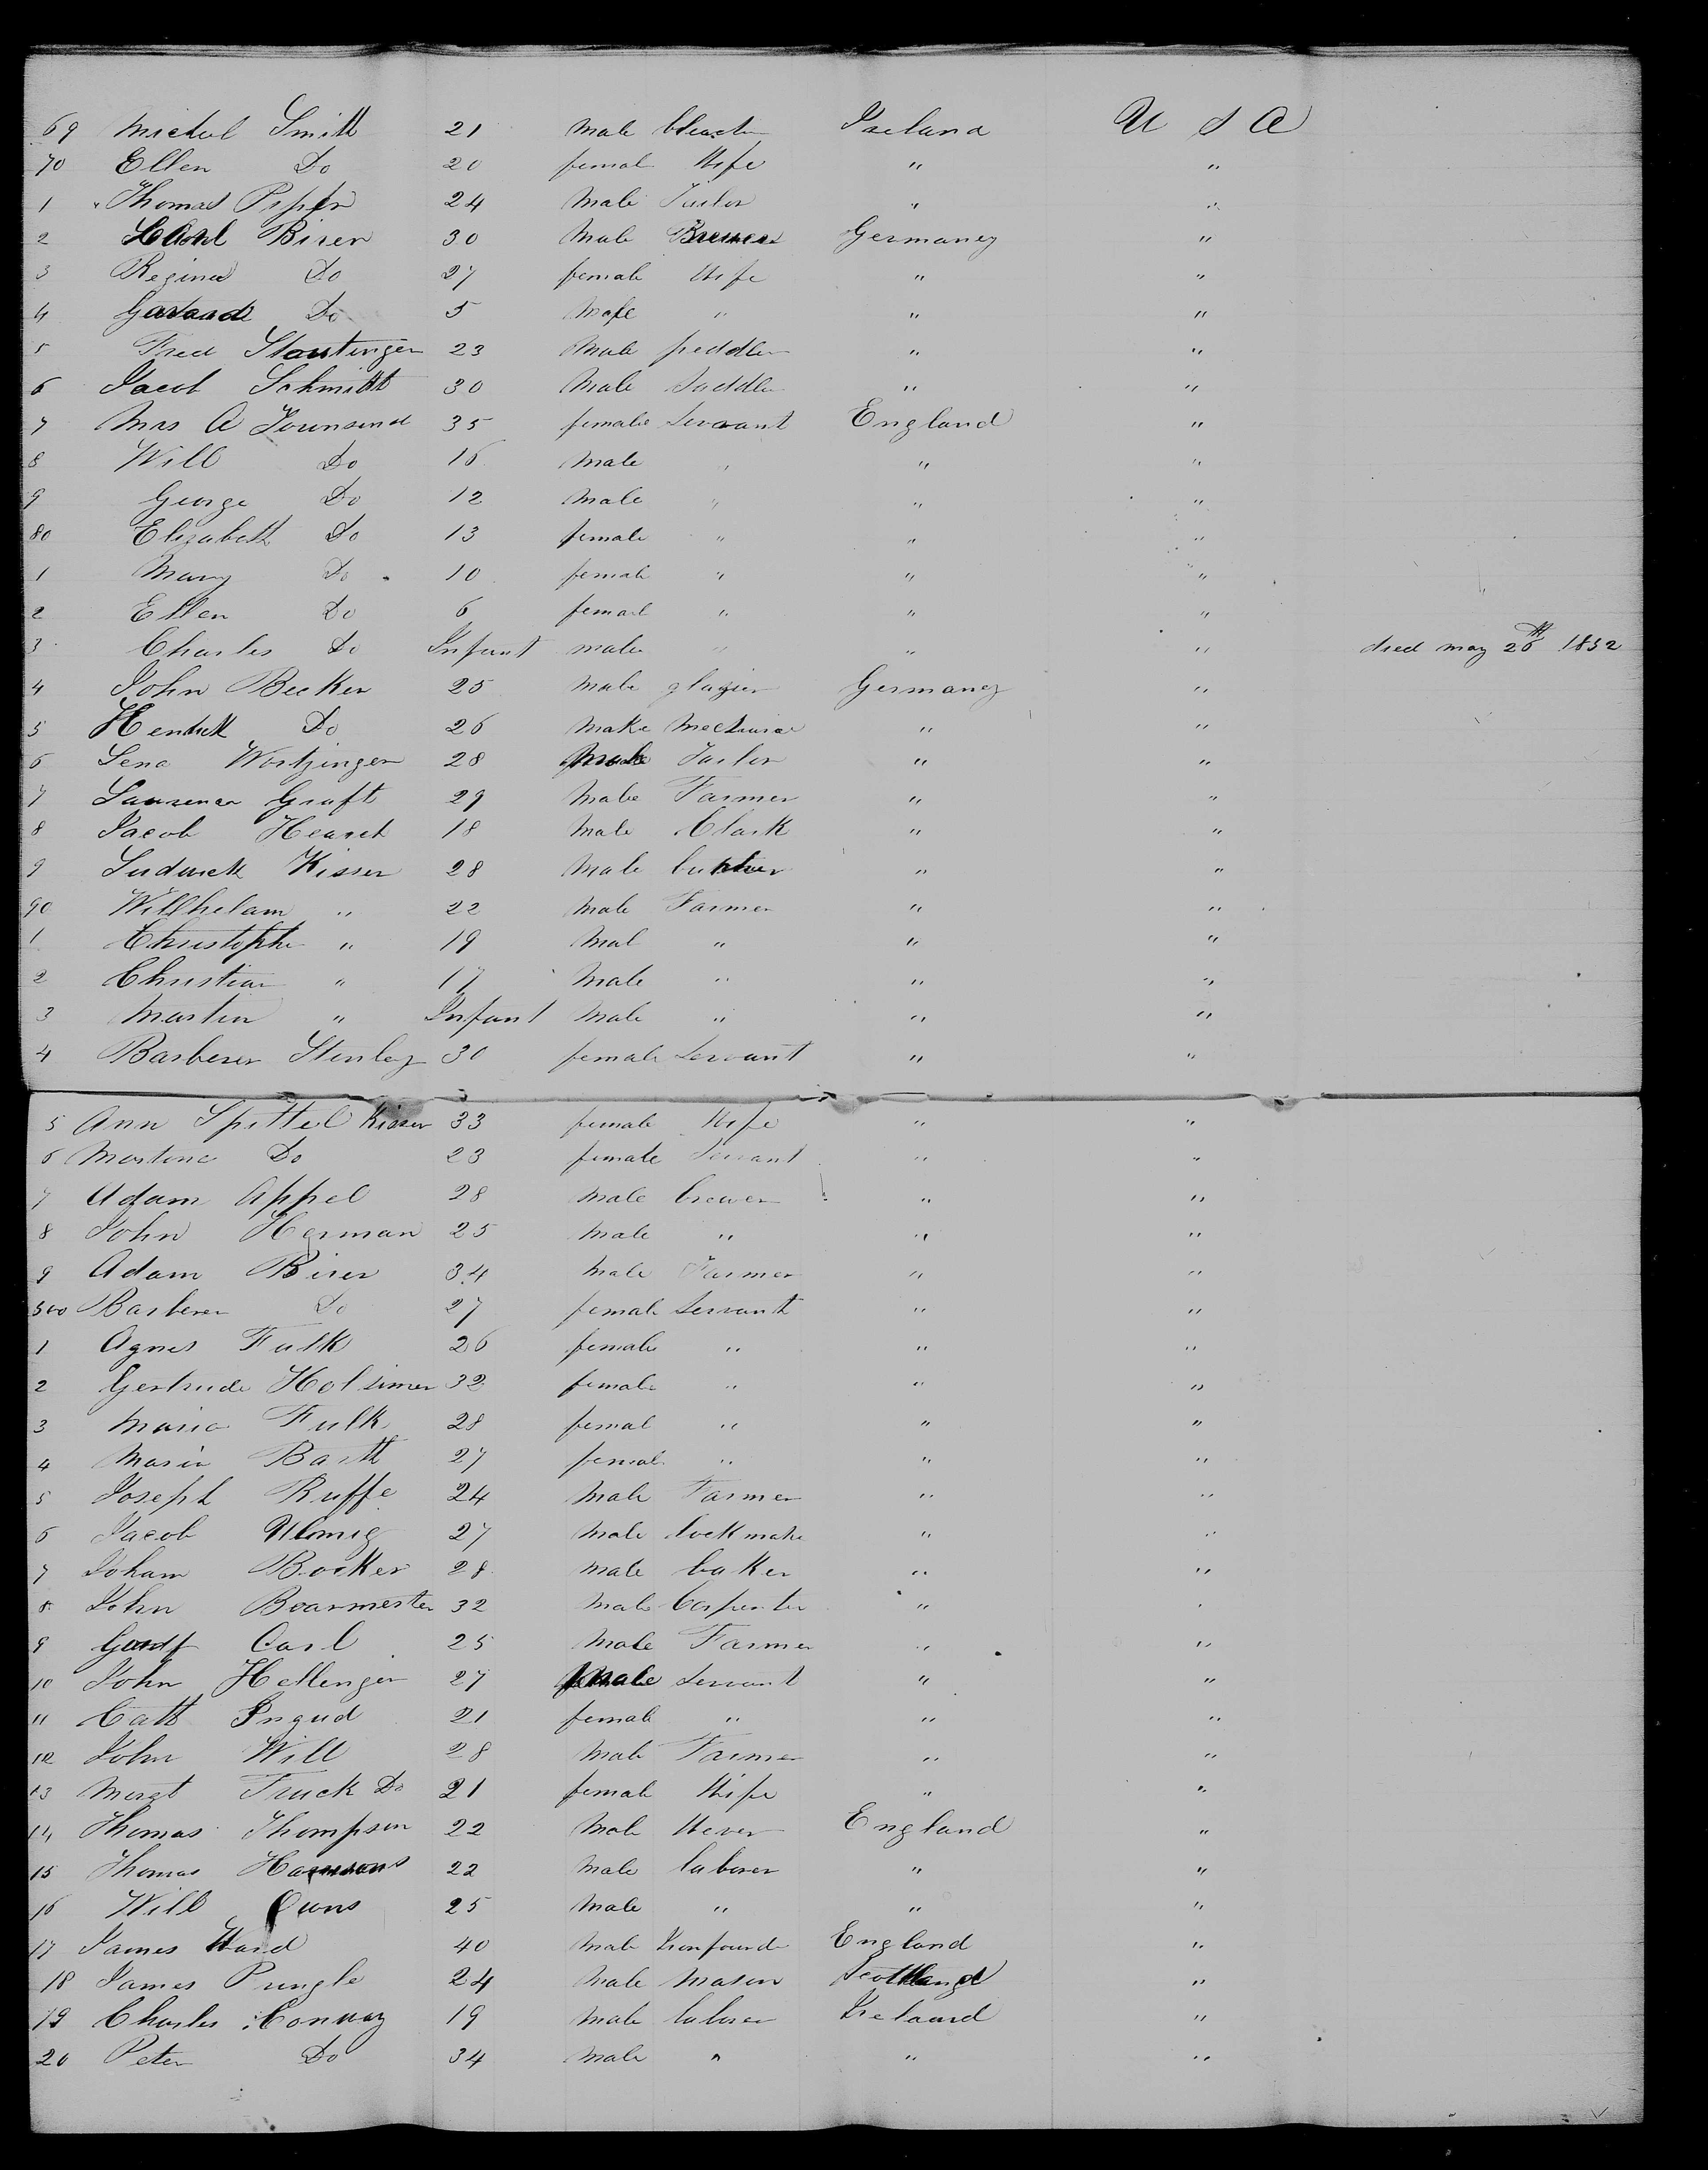 69 Michal Smith 21 male Ireland U S A
70 Ellen Do 20 femal Wife " "
1 Thomas Piper 24 Male Tailor " "
2 Carl Birer 30 Male Brewer Germaney "
3 Regina Do 27 female Wife " "
4 Do 5 Male " " "
5 Fred Stautinger 23 Male peddler " "
6 Jacob Schmidt 30 Male Saddler " "
7 Mrs A Townsend 35 female Servant England "
8 Will Do 16 Male " " "
9 George Do 12 Male " " "
80 Elizabeth Do 13 female " " "
1 Mary Do 10 female " " "
2 Ellen Do 6 femal " " "
3 Charles Do Infant male " " " died may 26th 1852
4 John Becker 25 Male glazier Germany "
5 Do 26 " "
6 Lena Wortzinger 28 Male Tailor " "
7 Laurence Graft 29 Male Farmer " "
8 Jacob Hearch 18 Male Clark " "
9 Ludwick Kisser 28 Male " "
90 Willhelam " 22 Male Farmer " "
1 Christophe " 19 Mal " " "
2 Christian " 17 Male " " "
3 Martin " Infant Male " " "
4 Barberer Stenley 30 female Servant " "
5 Ann Spittel Kisser 33 female Wife " "
6 Martena Do 23 female Servant " "
7 Adam Appel 28 male brewer " "
8 John Herman 25 Male " " "
9 Adam Birer 34 Male Farmer " "
500 Barberer Do 27 female Servant " "
1 Agnes Fulk 26 female " " "
2 Gertrude Holsimer 32 female " " "
3 Maria Fulk 28 femal " " "
4 Maria Barth 27 female " " "
5 Joseph Ruffe 24 Male Farmer " "
6 Jacob Ulmig 27 Male lockmake " "
7 Joham Bocker 28 male baker " "
8 John Boarmester 32 Male Carpenter "
9 Carl 25 Male Farmer " "
10 John Hellenger 27 Male Servant " "
11 Cath 21 female " " "
12 John Will 28 Male Farmer " "
13 Margt Fruck Do 21 female Wife " "
14 Thomas Thompson 22 Male Wever England "
15 Thomas 22 Male laborer " "
16 Will Owns 25 Male " " "
17 James Ward 40 Male Ironfounde England "
18 James Pringle 24 Male Mason Scotland "
19 Charles Conway 19 Male laborer Irelaand "
20 Peter Do 34 Male " " "